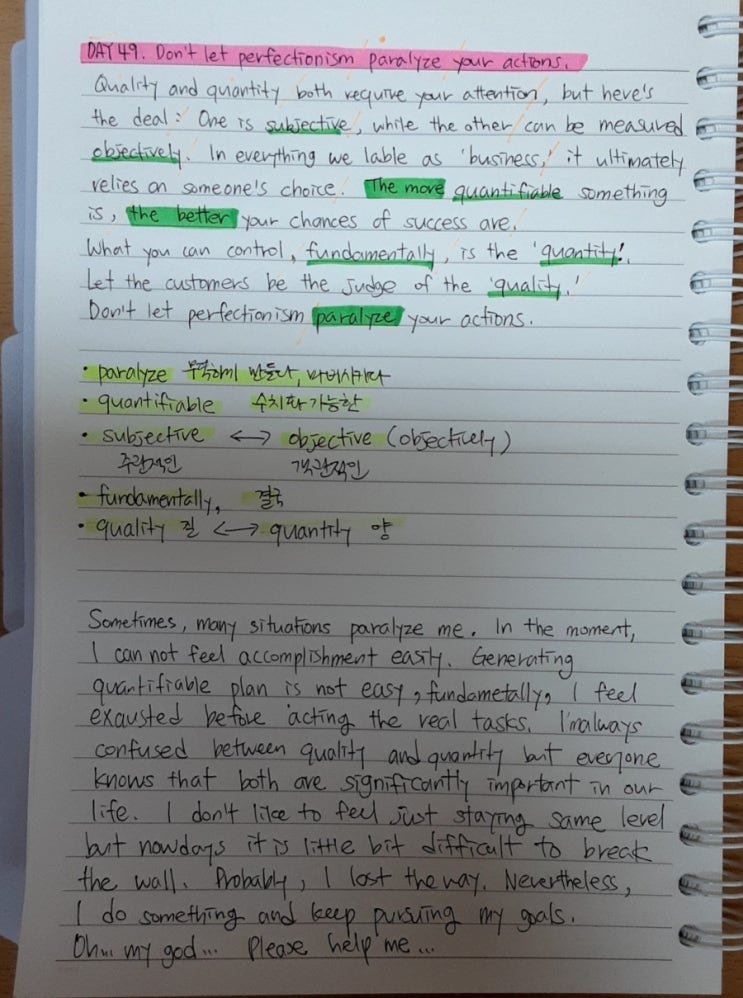 DAY 49. Don't let perfectionism paralyze your actions.
Quality and quantity both require your attention, but here's
the deal: One is subjective, while the other can be measured
objectively. In everything we lable as 'business,' it ultimately
relies on someone's choice. The more quantifiable something
is, the better your chances of success are.
What you can control, fundamentally, is the 'quantity'.
Let the customers be the judge of the 'quality.'
Don't let perfectionism paralyze your actions.
• paralyze 무력하게 만들다, 마비시키다
• quantifiable 수치화가능한
• subjective <-> objective (objectively)
주관적인 객관적인
• fundamentally, 결국
• quality 질 <-> quantity 양
Sometimes, many situations paralyze me. In the moment,
I can not feel accomplishment easily. Generating
quantifiable plan is not easy, fundametally, I feel
exausted before acting the real tasks. I'm always
confused between quality and quantity but everyone
knows that both are significantly important in our
life. I don't like to feel just staying same level
but nowdays it is little bit difficult to break
the wall. Probably, I lost the way. Nevertheless,
I do something and keep pursuing my goals.
Oh... my god... Please help me...